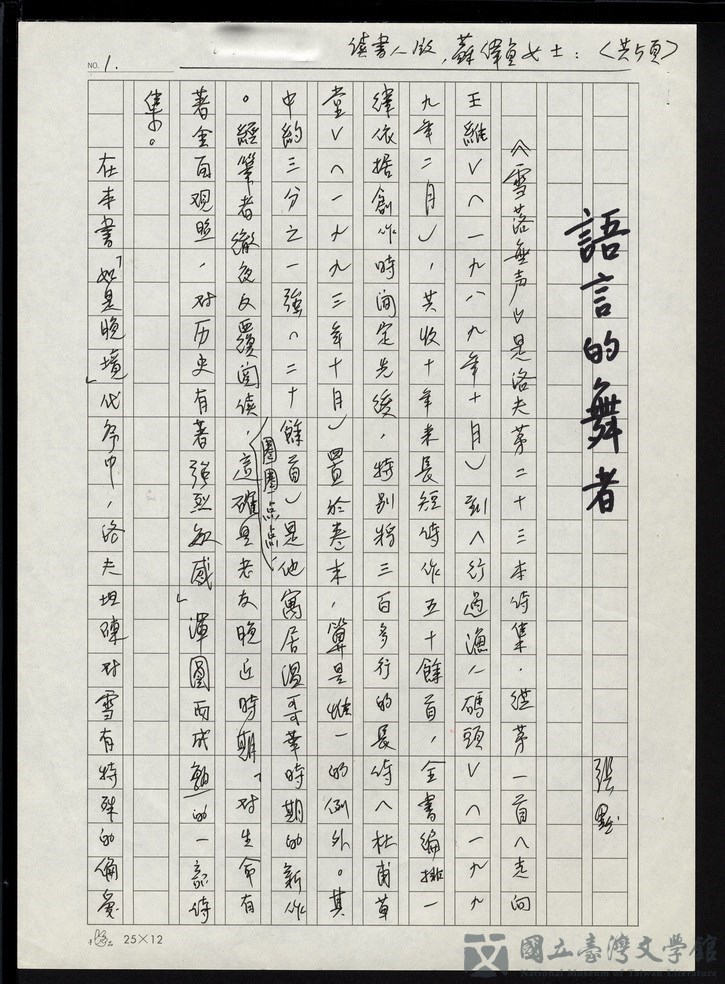 讀書人版，蘇偉貞女士：（共5頁）
NO. 1.
語言的舞者
張默
《雪落無声》是洛夫第二十三本诗集．從第一首〈走向
王維〉（一九八九年十月）到〈行過漁人碼頭〉（一九九
九年二月），共收十年來長短诗作五十餘首，全書編排一
律依据創作時间定先後，特别將三百多行的長诗〈杜甫草
堂〉（一九九三年十月）置於卷末，算是惟一的例外。其
中約三分之一強（二十餘首）是他寓居溫哥華時期的新作
。經筆者徹夜反覆阅读，圈圈点点，這確是老友晚近時期「对生命有
著全面观照，对历史有著強烈敏感」渾圓而成熟的一部诗
集。
在本書「如是晚境」代序中，洛夫坦陳对雪有特殊的偏愛
25×12
國立臺灣文學館
National Museum of Taiwan Literature